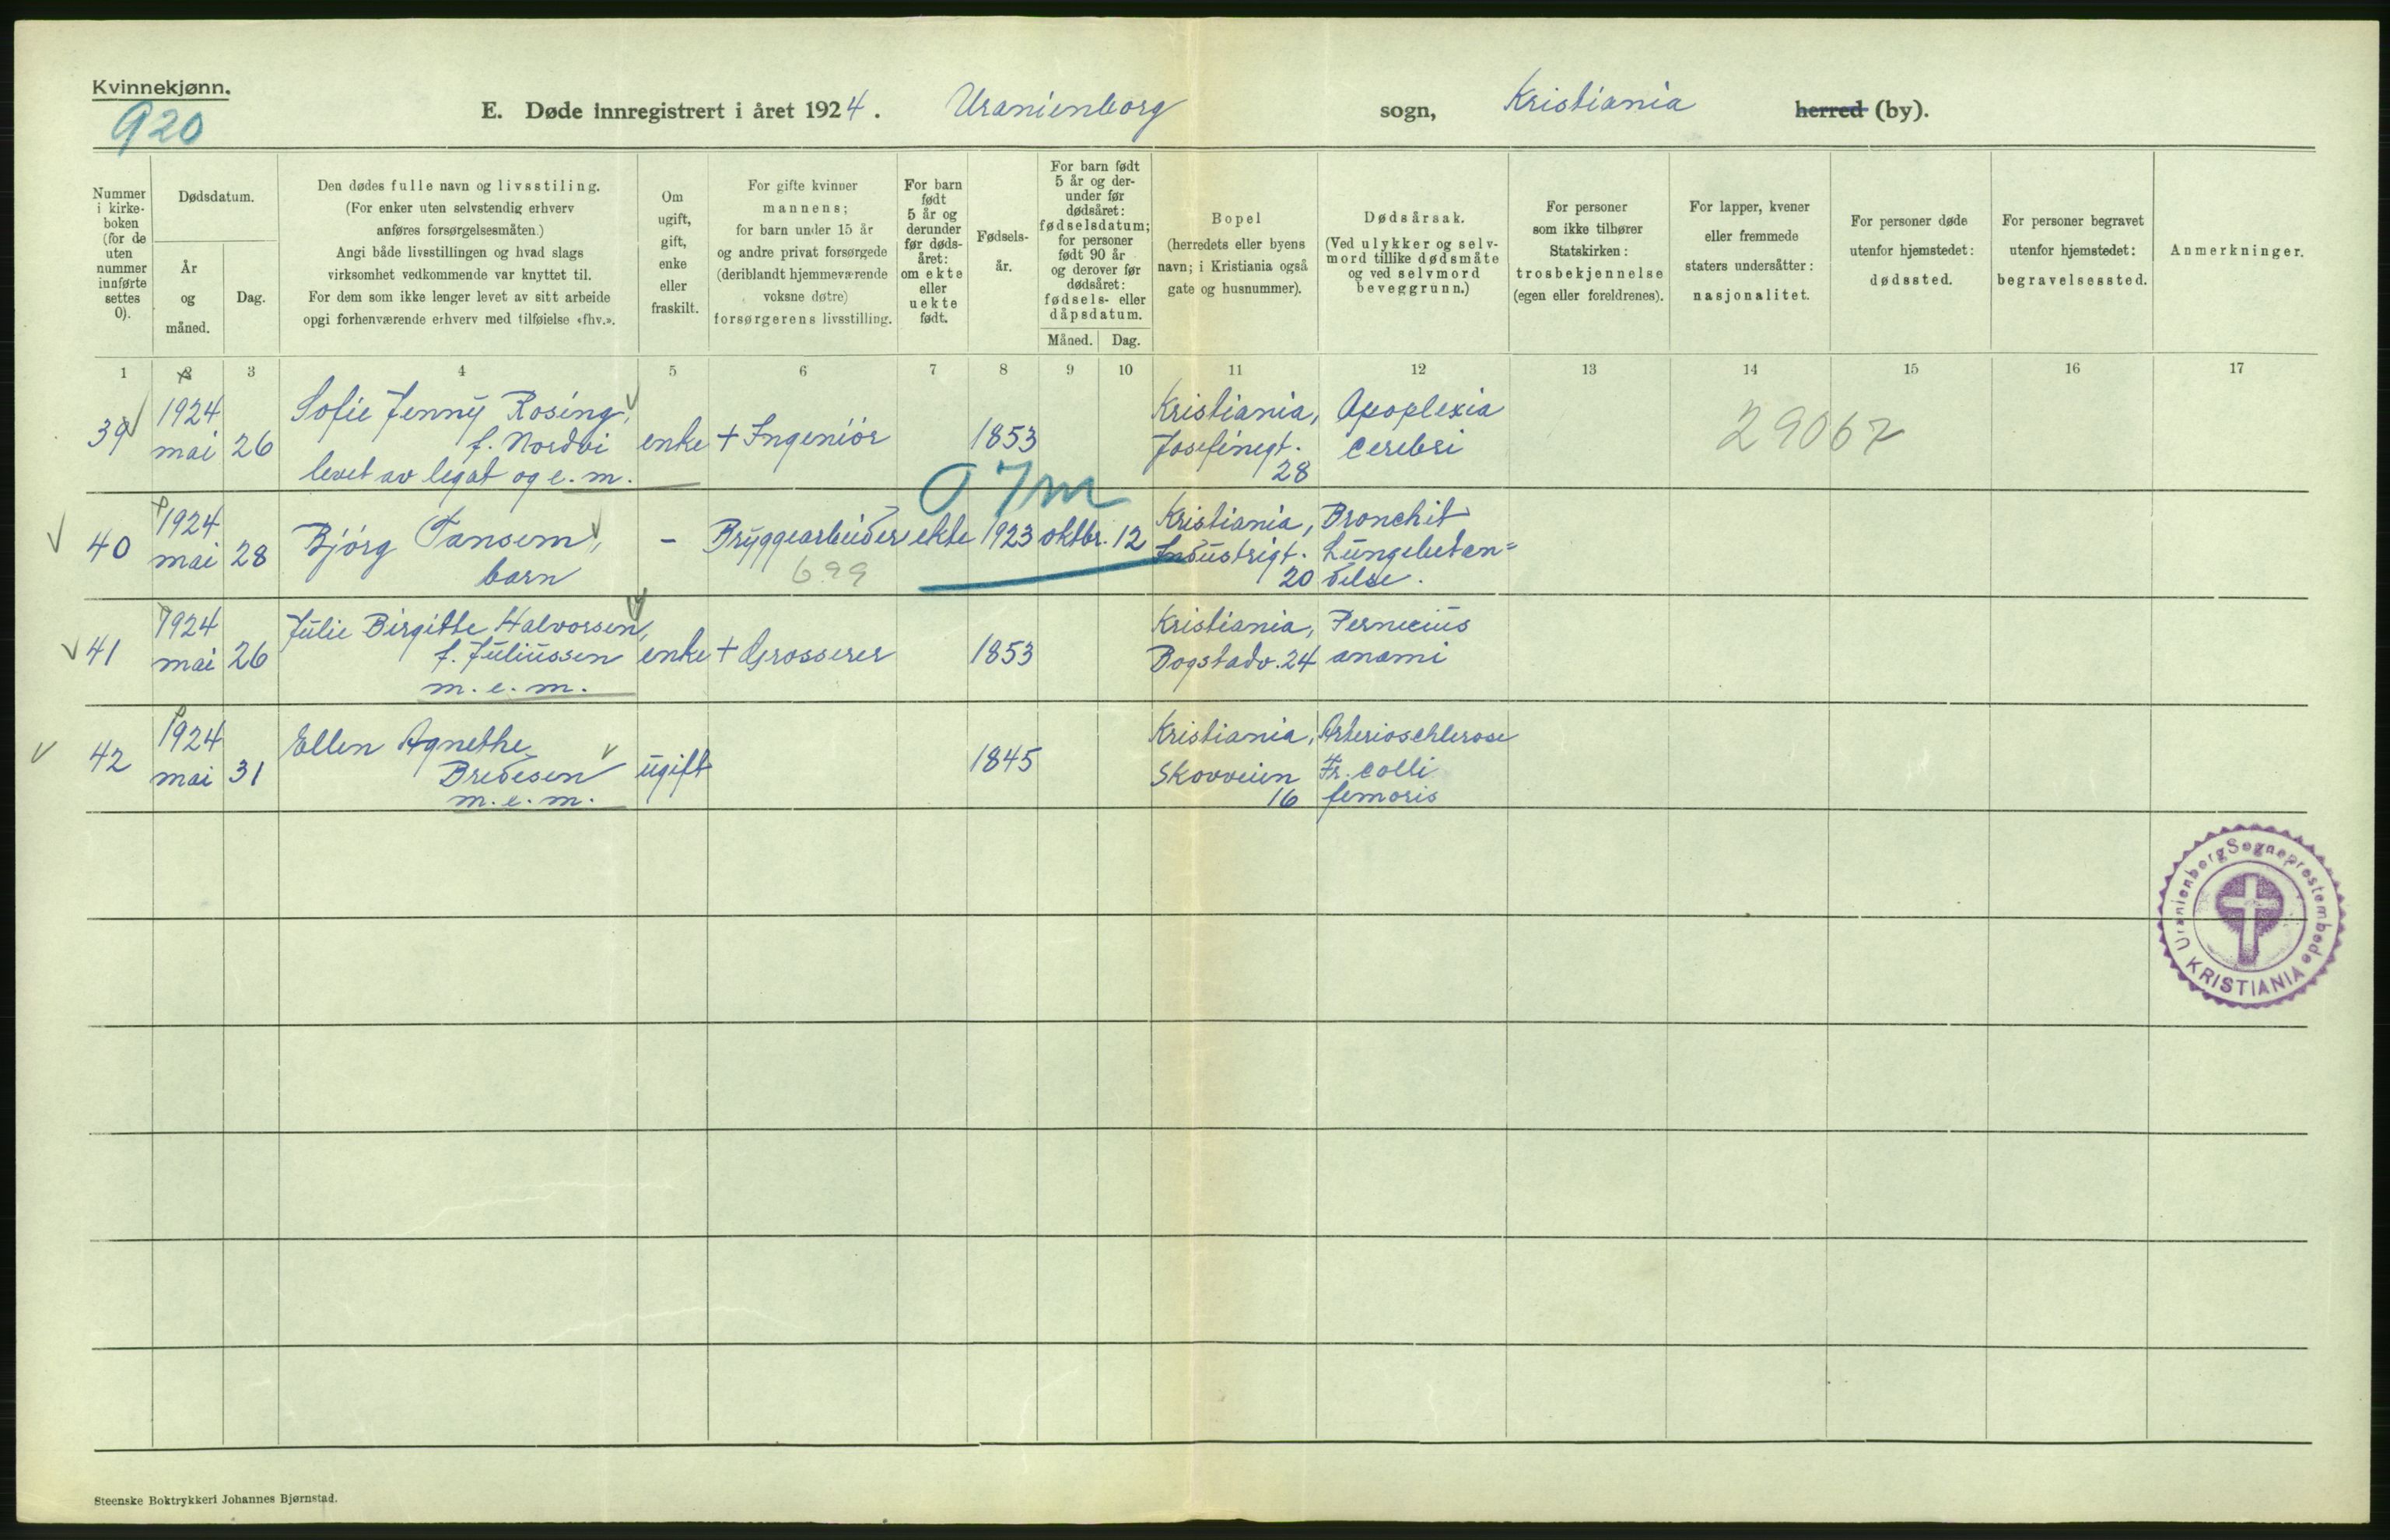 Kvinnekjønn.
920
E. Døde innregistrert i året 1924. Uranienborg sogn, Kristiania herred (by).
Nummer i kirke- boken (for de uten nummer innførte settes 0).
Dødsdatum.
År og måned.
Dag.
Den dødes fulle navn og livsstiling.
(For enker uten selvstendig erhverv
anføres forsørgelsesmåten.)
Angi både livsstillingen og hvad slags
virksomhet vedkommende var knyttet til.
For dem som ikke lenger levet av sitt arbeide
opgi forhenværende erhverv med tilføielse «fhv.».
Om ugift, gift, enke eller fraskilt.
For gifte kvinner
mannens;
for barn under 15 år
og andre privat forsørgede
(deriblandt hjemmeværende
voksne døtre)
forsørgerens livsstilling.
For barn født 5 år og derunder før døds- året: om ekte eller uekte født.
Fødsels- år.
For barn født 5 år og der- under før dødsåret: fødselsdatum; for personer født 90 år og derover før dødsåret: fødsels- eller dåpsdatum.
Måned. Dag.
Bopel
(herredets eller byens
navn; i Kristiania også
gate og husnummer).
Dødsårsak.
(Ved ulykker og selv-
mord tillike dødsmåte
og ved selvmord
beveggrunn.)
For personer
som ikke tilhører
Statskirken:
trosbekjennelse
(egen eller foreldrenes).
For lapper, kvener
eller fremmede
staters undersåtter:
nasjonalitet.
For personer døde
utenfor hjemstedet:
dødssted.
For personer begravet
utenfor hjemstedet:
begravelsessted.
Anmerkninger.
1 2 3 4 5 6 7 8 9 10 11 12 13 14 15 16 17
39 1924 mai 26 Sofie Jenny Rosing, f. Nordvi levet av legat og e. m. enke + Ingeniör 1853 Kristiania, Josefinegt. 28 Apoplexia cerebri 29067
0 7m
40 1924 mai 28 Bjórg Tansem, barn - Bryggearbeider 699 ekte 1923 oktbr. 12 Kristiania, Industrigt. 20 Bronchit Lungebetæn= delse.
41 1924 mai 26 Julie Birgitte Halvorsen, f. Juliussen m. e. m. enke + Grosserer 1853 Kristiania, Bogstadv. 24 Perneciüs anæmi
42 1924 mai 31 Ellen Agnethe Bredesen m. e. m. ugift 1845 Kristiania, Skovveien 16 Arterioschlerose Fr. colli femoris
Uranienborg Sogneprestembede
KRISTIANIA
Steenske Boktrykkeri Johannes Bjørnstad.